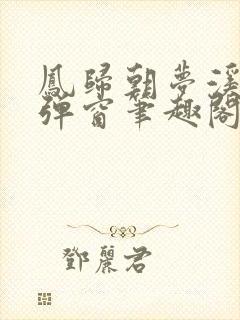 鳳歸朝夢溪
彈窗筆趣閣
鄧麗君